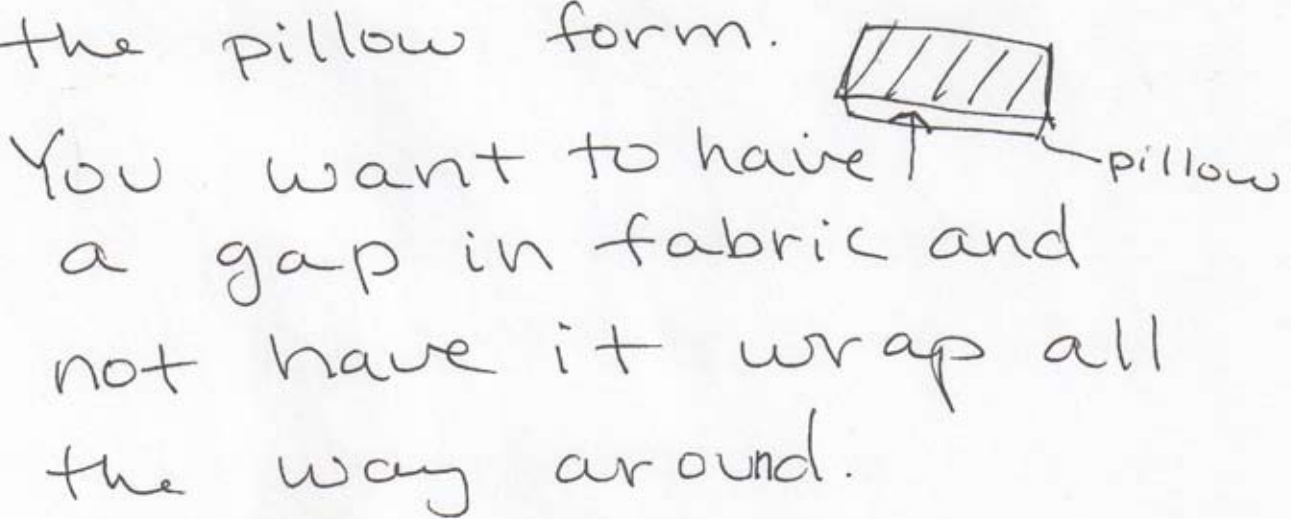 the pillow form.
You want to have
pillow
a gap in fabric and
not have it wrap all
the way around.